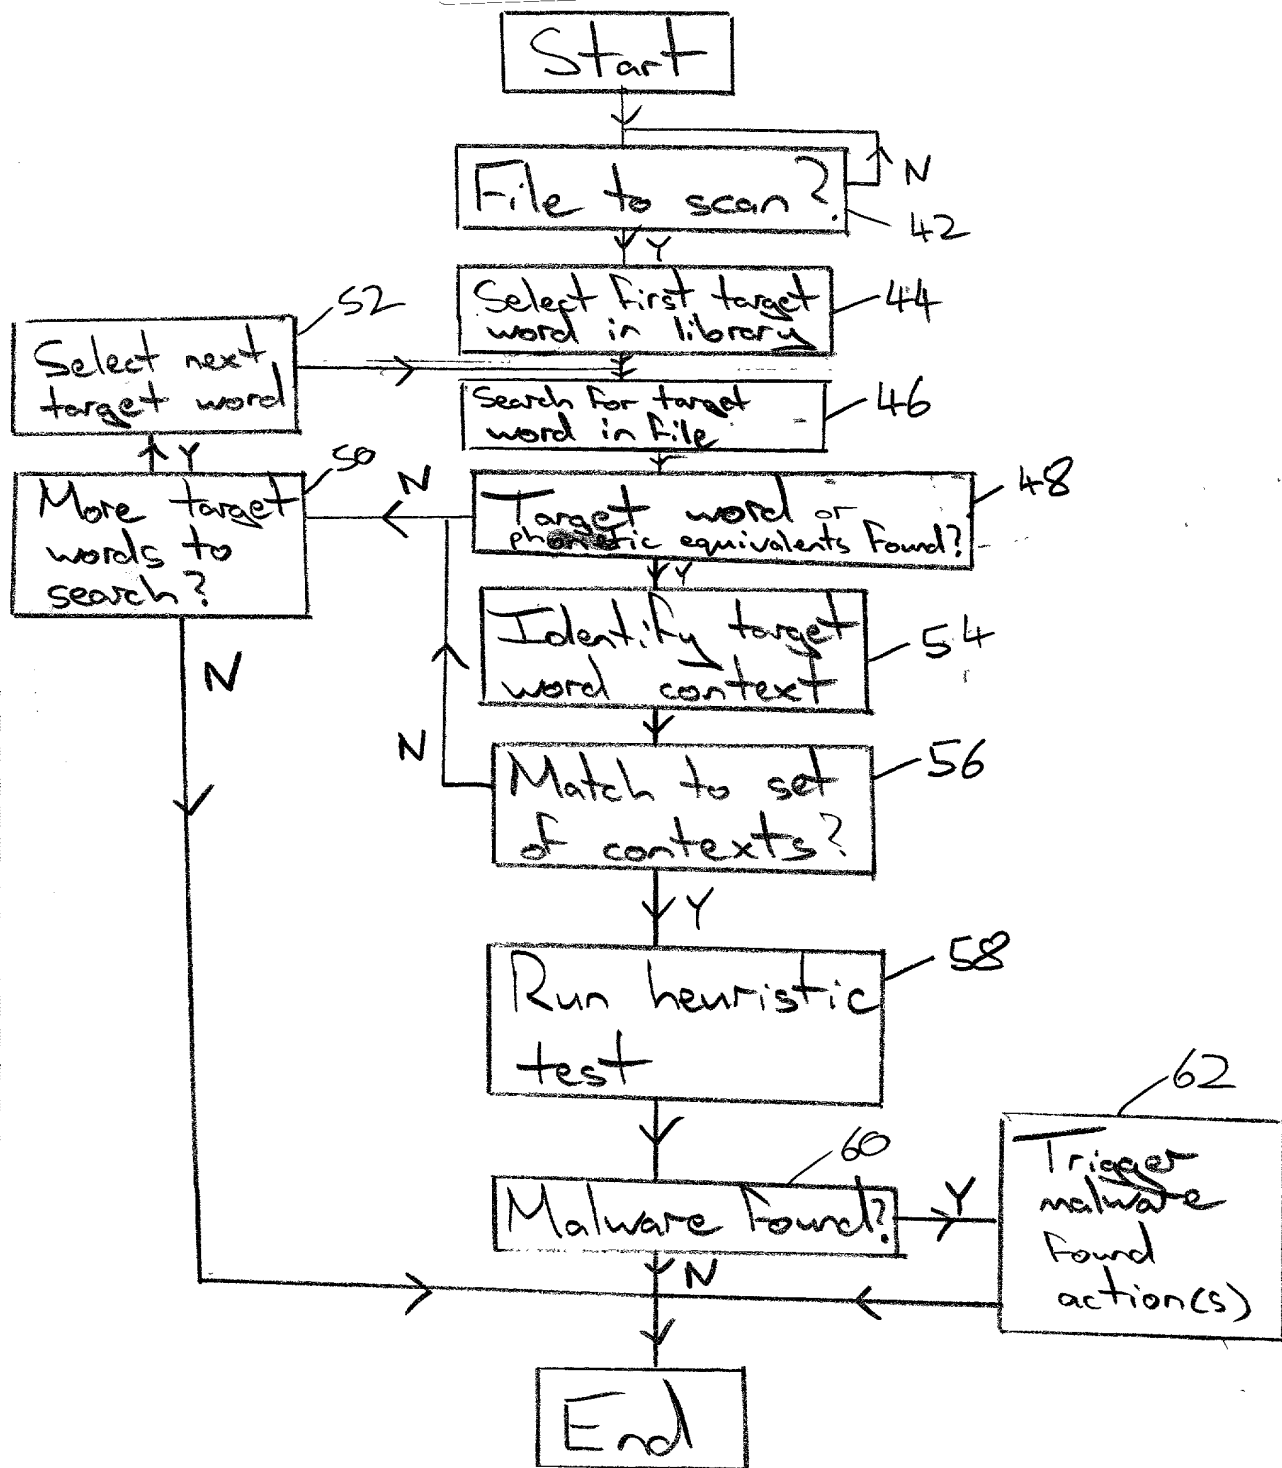 Start
File to scan?
N
42
Y
Select first target
word in library
44
52
Select next
target word
Search for target
word in file
46
Y
50
More target
words to
search?
N
Target word or
phonetic equivalents found?
48
Y
N
Identify target
word context
54
N
Match to set
of contexts?
56
Y
Run heuristic
test
58
60
Malware found?
Y
62
Trigger
malware
found
action(s)
N
End